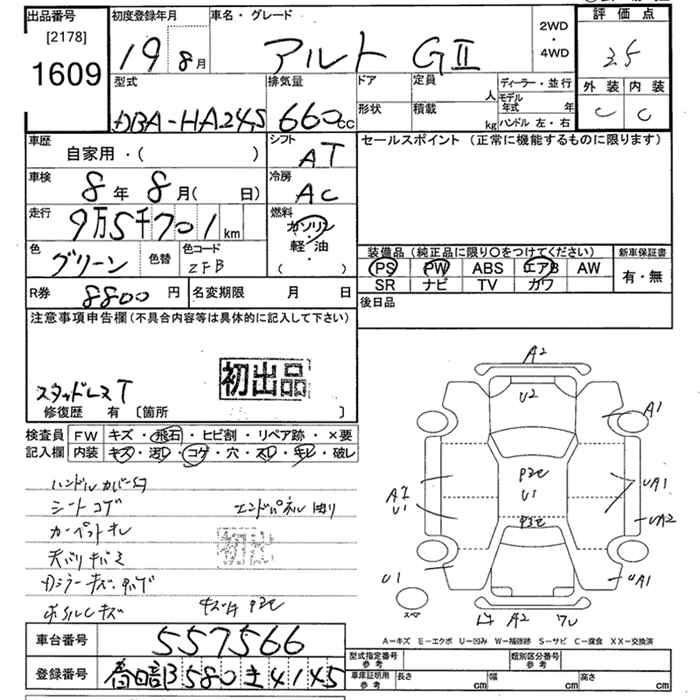 出品番号 [2178] 1609
初度登録年月 19 8月
車名・グレード アルト GⅡ
2WD ・ 4WD
評価点 3.5
外装 C 内装 C
型式 DBA-HA24S
排気量 660cc
ドア 形状
定員 人
積載 kg
ディーラー・並行
モデル年式 年
ハンドル 左・右
車歴 自家用・( )
シフト AT
セールスポイント (正常に機能するものに限ります)
車検 8年 8月( 日)
冷房 AC
走行 9万5千701km
燃料 ガソリン・軽油 ( )
色 グリーン 色替 色コード ZFB
装備品(純正品に限り○をつけてください) 新車保証書
PS PW ABS エアB AW 有・無
SR ナビ TV カワ
R券 8800円 名変期限 月 日
後日品
注意事項申告欄(不具合内容等は具体的に記入して下さい)
初出品
スタッドレスT
修復歴 有 〔箇所 〕
検査員 FW キズ・飛石・ヒビ割・リペア跡・×要
記入欄 内装 キズ・汚レ・コゲ・穴・スレ・キレ・破レ
シートコゲ
A2
U2
A1
U1
UA1
UA2
U1
UA1
A2
スペア
A—キズ E—エクボ U—凹み W—補修跡 S—サビ C—腐食 XX—交換済
車台番号 557566
型式指定番号 参考 類別区分番号 参考
登録番号 春日部 580 き 4145
車庫証明用 参考 長さ cm 幅 cm 高さ cm